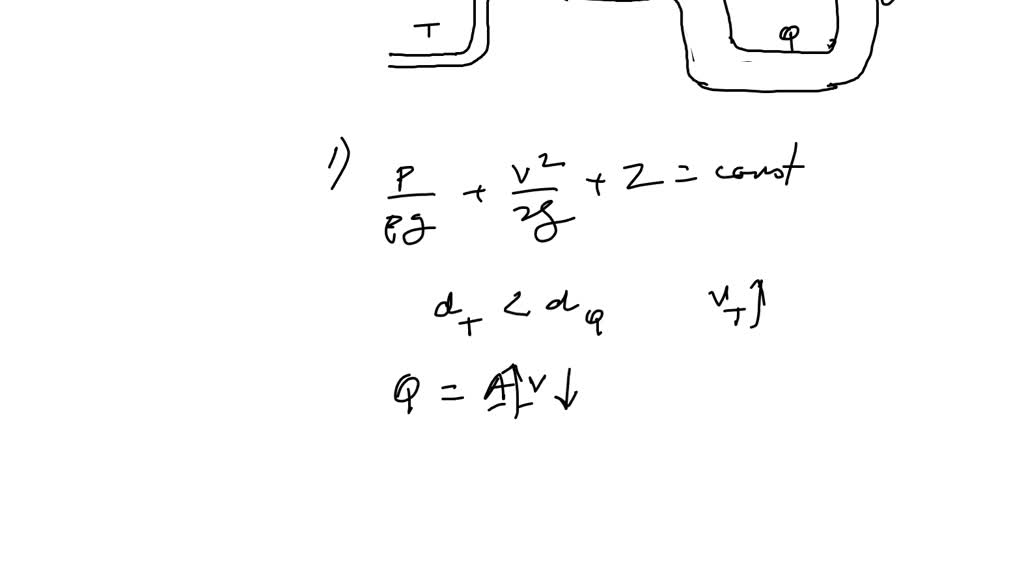 T
Q
1) P/ρg + v²/2g + Z = const
d_T < d_Q V_T ↑
Q = A↑ v ↓